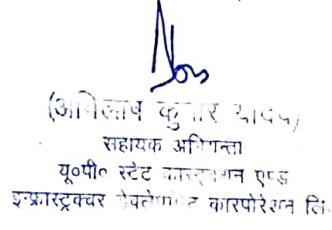 (अभिलाष कुमार यादव)
सहायक अभियन्ता
यू०पी० स्टेट कन्स्ट्रक्शन एण्ड
इन्फ्रास्ट्रक्चर डेवलेपमेन्ट कारपोरेशन लि०